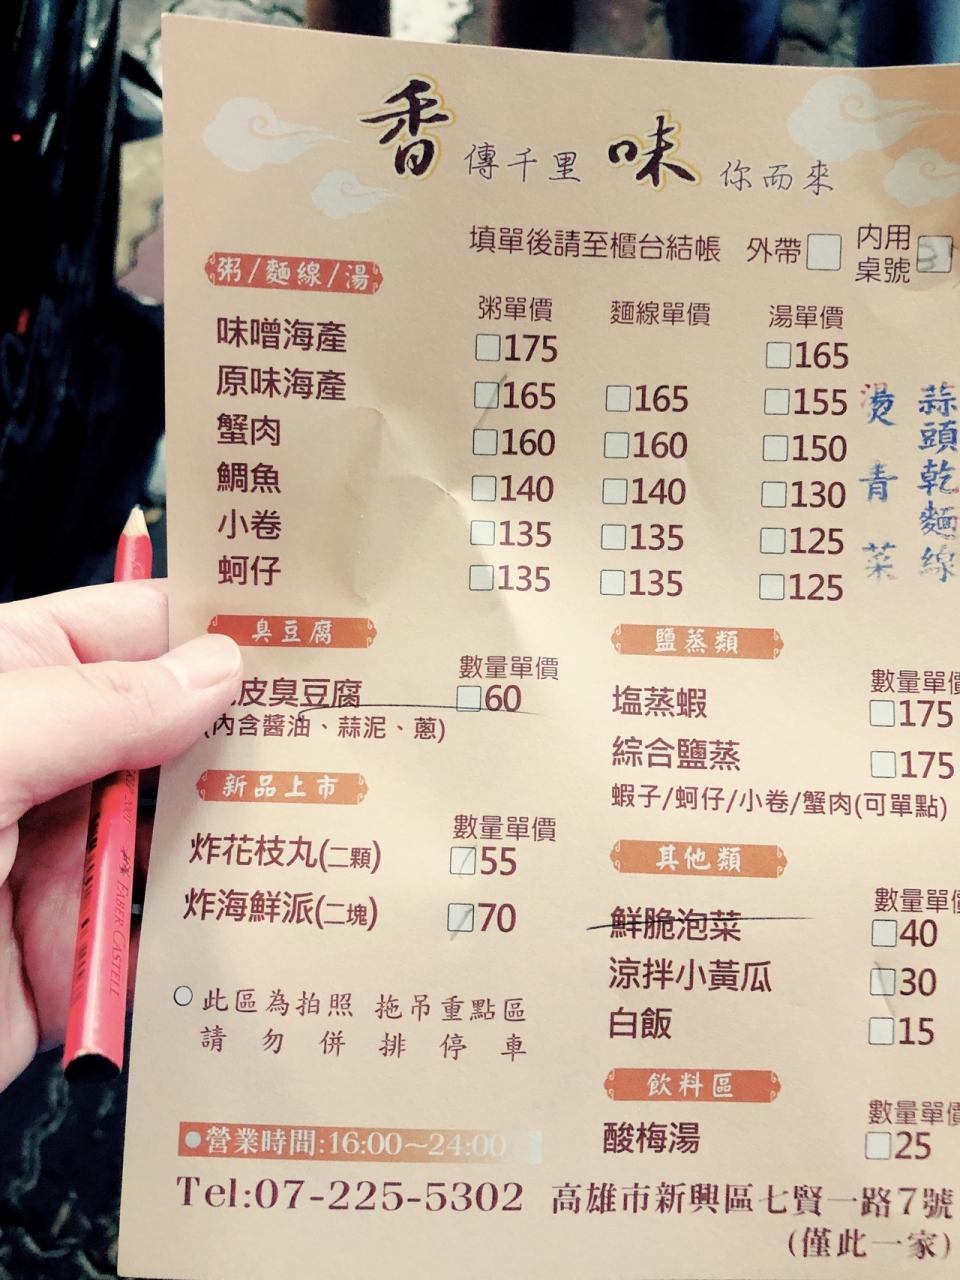 香傳千里 味你而來
填單後請至櫃台結帳 外帶 內用桌號
粥/麵線/湯
粥單價 麵線單價 湯單價
味噌海產 175 165
原味海產 165 165 155
蟹肉 160 160 150
鯛魚 140 140 130
小卷 135 135 125
蚵仔 135 135 125
燙青菜
蒜頭乾麵線
臭豆腐
數量單價
皮臭豆腐 60
(內含醬油、蒜泥、蔥)
新品上市
數量單價
炸花枝丸(二顆) 55
炸海鮮派(二塊) 70
此區為拍照 拖吊重點區
請勿併排停車
鹽蒸類
數量單價
塩蒸蝦 175
綜合鹽蒸 175
蝦子/蚵仔/小卷/蟹肉(可單點)
其他類
數量單價
鮮脆泡菜 40
涼拌小黃瓜 30
白飯 15
飲料區
數量單價
酸梅湯 25
營業時間:16:00~24:00
Tel:07-225-5302 高雄市新興區七賢一路7號
(僅此一家)
FABER-CASTELL